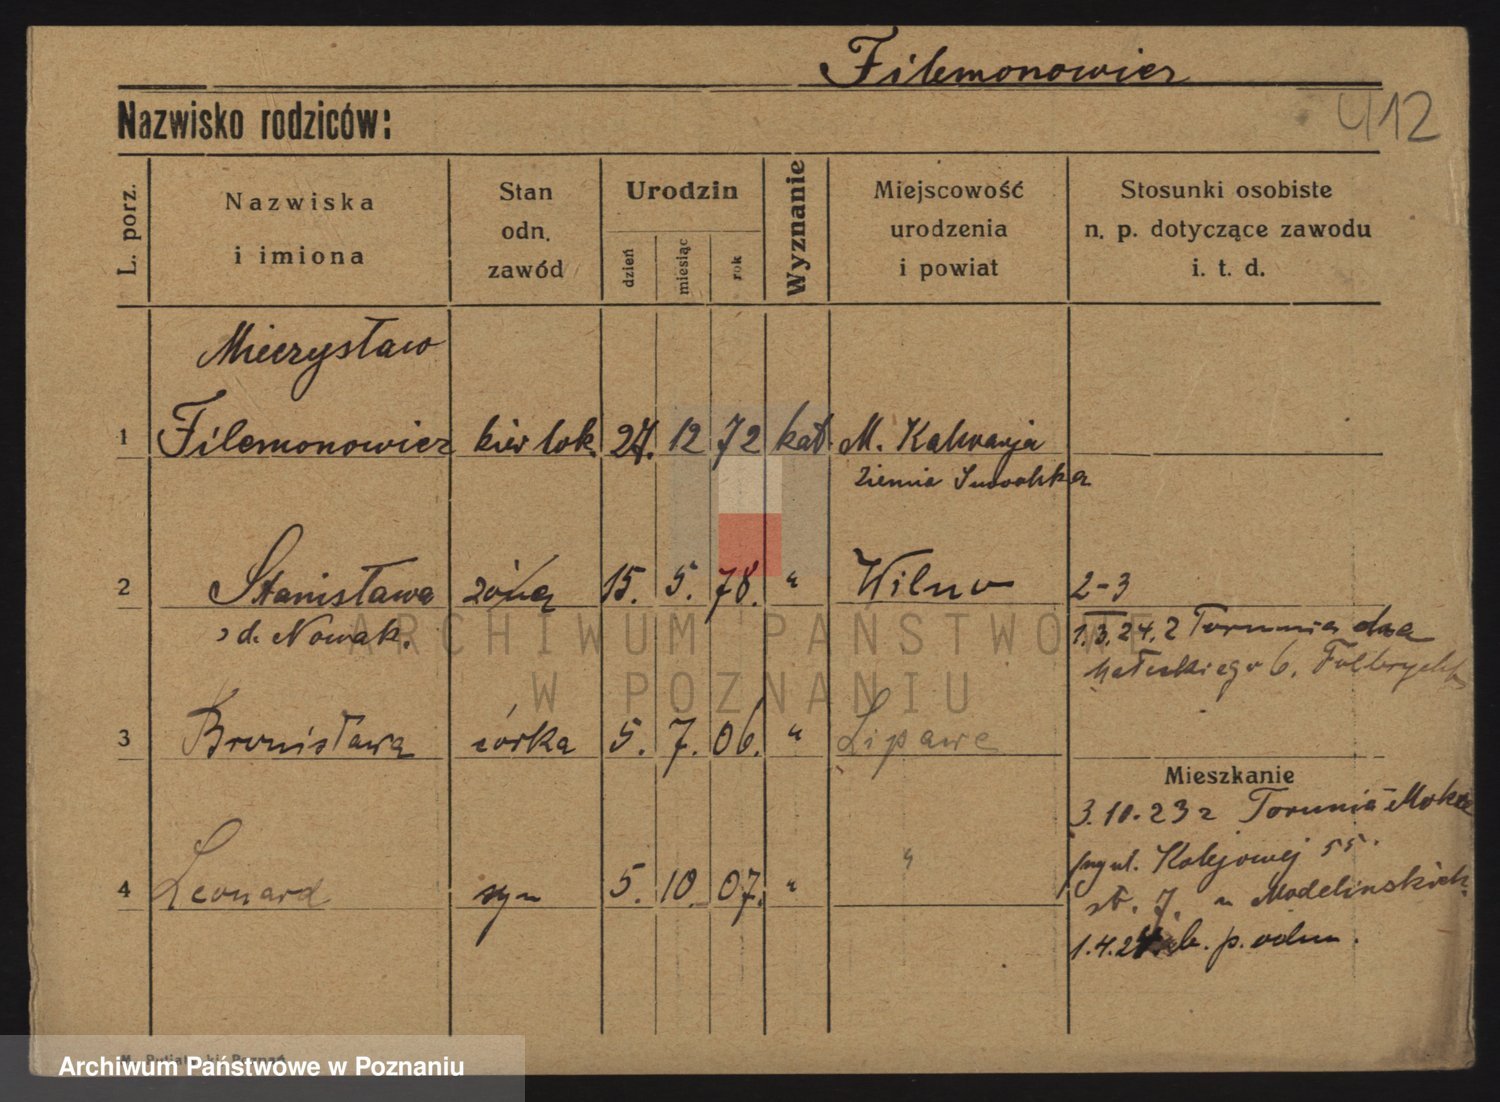 Filemonowicz
412
Nazwisko rodziców:
L. porz.
Nazwiska
i imiona
Stan
odn.
zawód
Urodzin
dzień
miesiąc
rok
Wyznanie
Miejscowość
urodzenia
i powiat
Stosunki osobiste
n. p. dotyczące zawodu
i. t. d.
Mieczysław
1 Filemonowicz kier lok. 27. 12 72 kat. M. Kalwarja
Ziemia Suwalska
2 Stanisława żona 15. 5. 78. " Wilno 2-3
z d. Nowak. 1.3.24. z Torunia
6.
3 Bronisława córka 5. 7. 06. " Lipawa
Mieszkanie
3.10.23 z Torunia-Mokre
ul. Kolejowej 55.
4 Leonard syn 5. 10. 07. " "
st. 7. u
1.4.24. p. odm.
ARCHIWUM PAŃSTWOWE
W POZNANIU
Archiwum Państwowe w Poznaniu